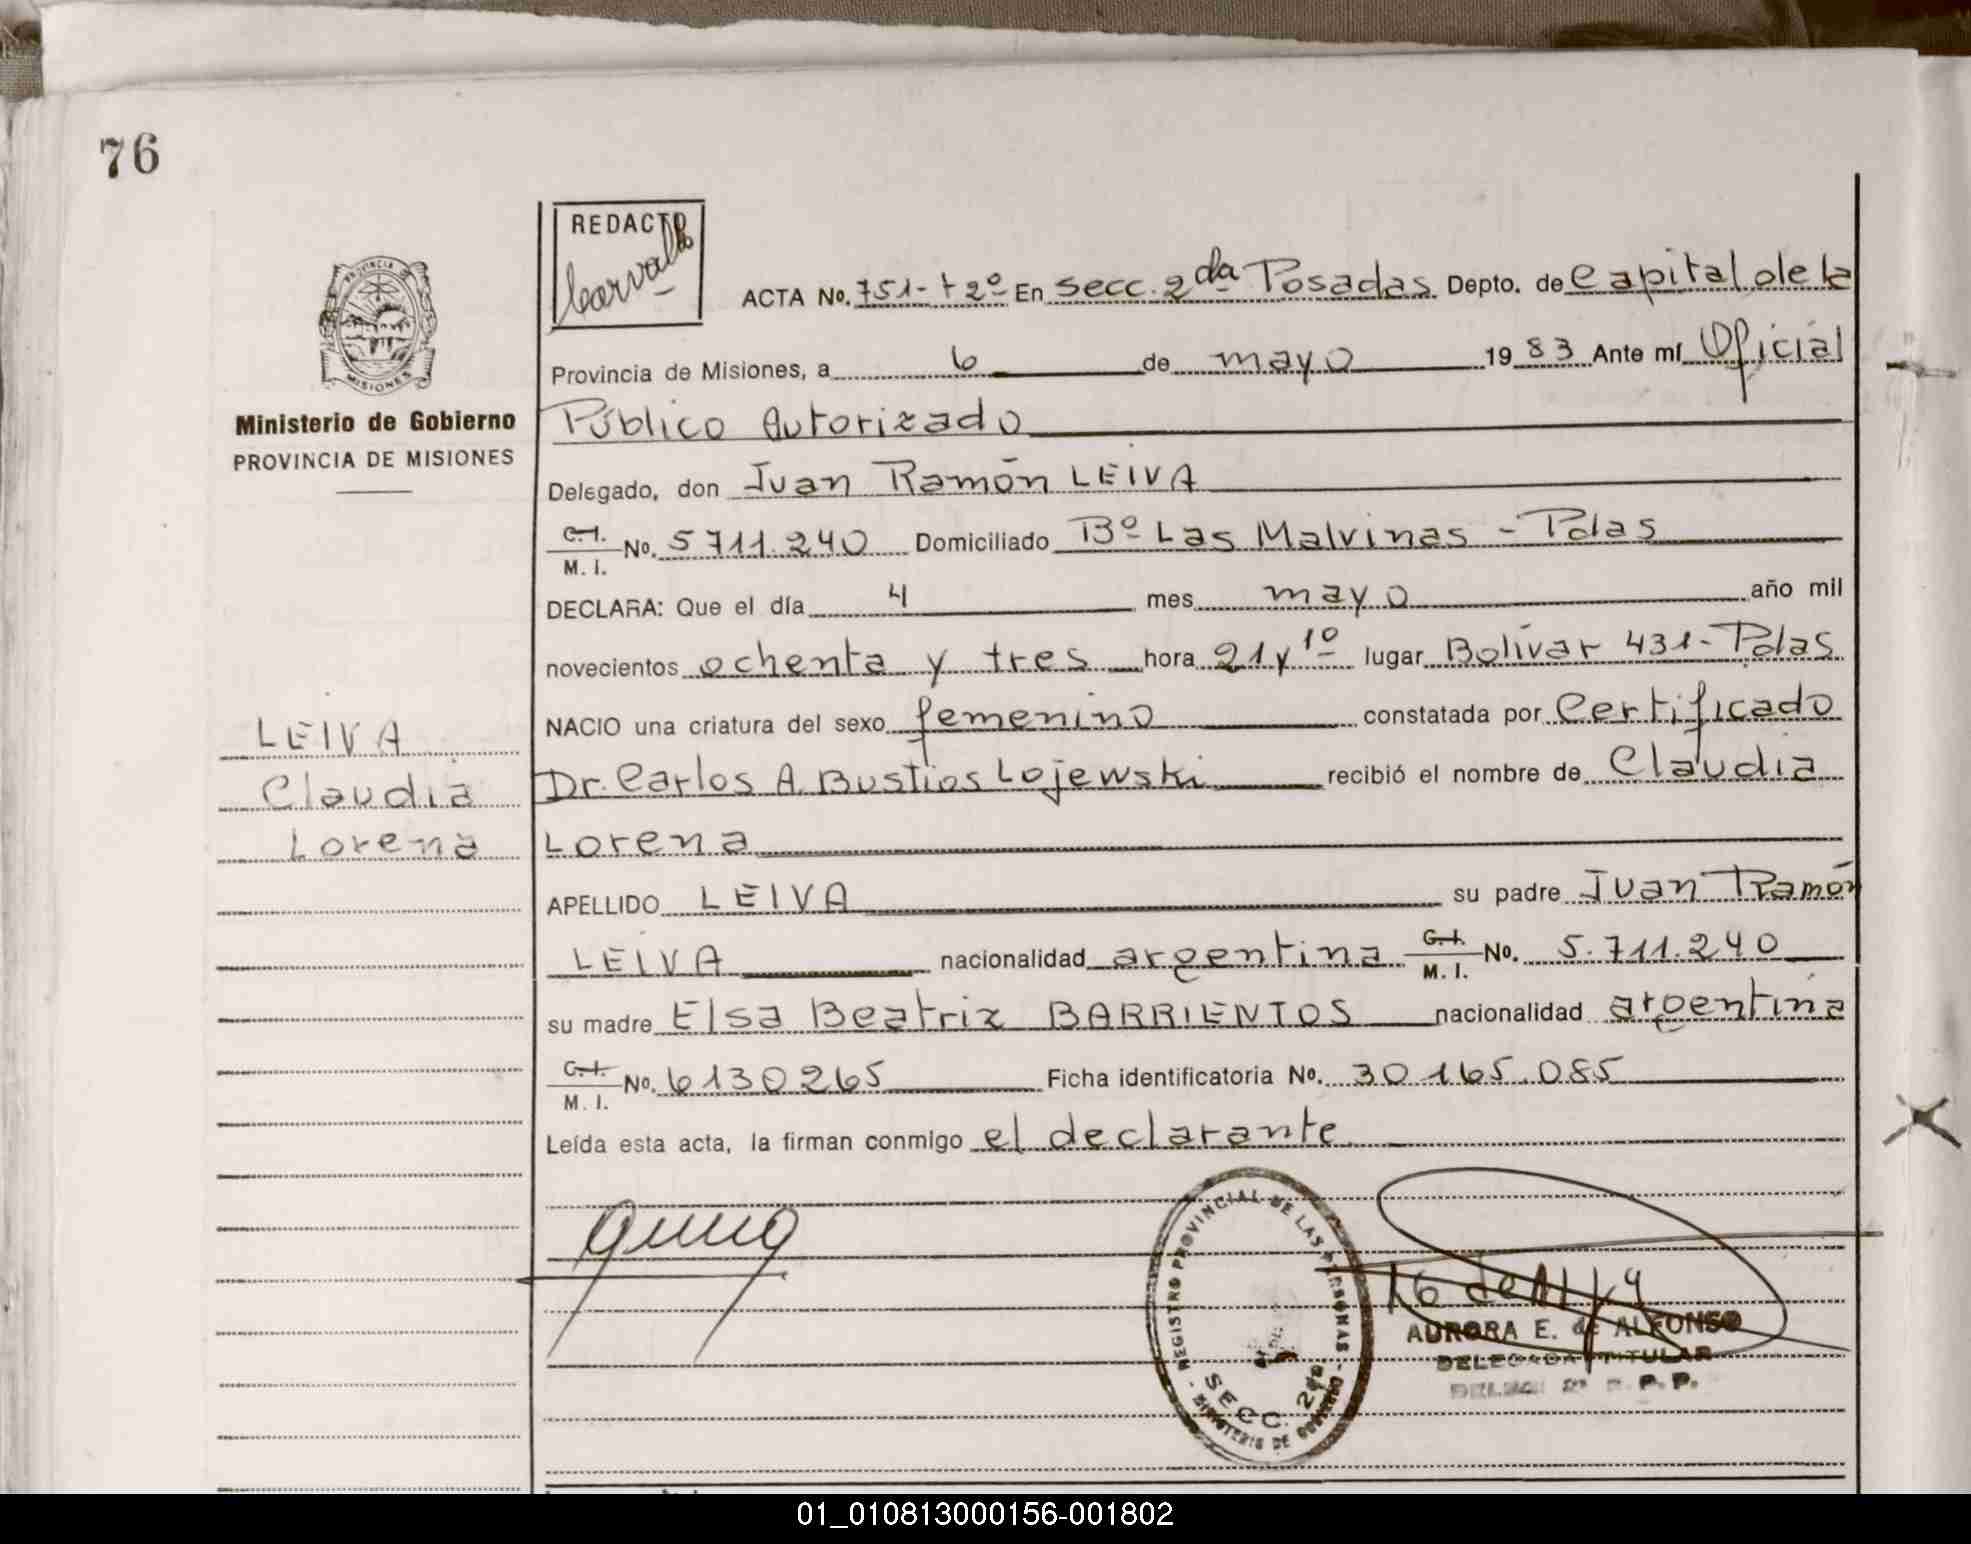 76
REDACTO
Carvallo
ACTA No. 751-t 2º En Secc. 2da Posadas Depto. de Capital de la
PROVINCIA
MISIONES
Provincia de Misiones, a 6 de mayo 1983 Ante mí Oficial
Ministerio de Gobierno
PROVINCIA DE MISIONES
Público Autorizado
Delegado, don Juan Ramón LEIVA
C.I. M.I. No. 5711.240 Domiciliado Bº Las Malvinas - Pdas
DECLARA: Que el día 4 mes mayo año mil
novecientos ochenta y tres hora 21 y 10 lugar Bolívar 431-Pdas
NACIO una criatura del sexo femenino constatada por Certificado
LEIVA
Claudia
Lorena
Dr. Carlos A. Bustios Lojewski recibió el nombre de Claudia
Lorena
APELLIDO LEIVA su padre Juan Ramón
LEIVA nacionalidad argentina C.I. M.I. No. 5.711.240
su madre Elsa Beatriz BARRIENTOS nacionalidad argentina
C.I. M.I. No. 6130265 Ficha identificatoria No. 30.165.085
Leída esta acta, la firman conmigo el declarante
REGISTRO PROVINCIAL DE LAS PERSONAS - MINISTERIO DE GOBIERNO -
SECC. 2da
AURORA E. de ALFONSO
DELEGADA TITULAR
R. P. P.
01_010813000156-001802